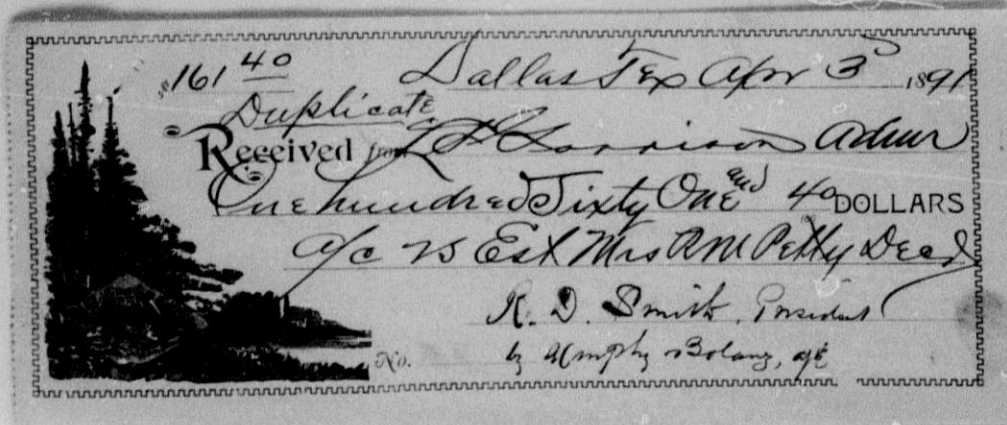 $161 40 Dallas Tex Apr 3d 1891
Duplicate
Received from Garrison Admr
One hundred Sixty One and 40 DOLLARS
a/c vs Est Mrs R M Petty Decd
R. D. Smith, President
by Murphy & Bolanz, agt
No.